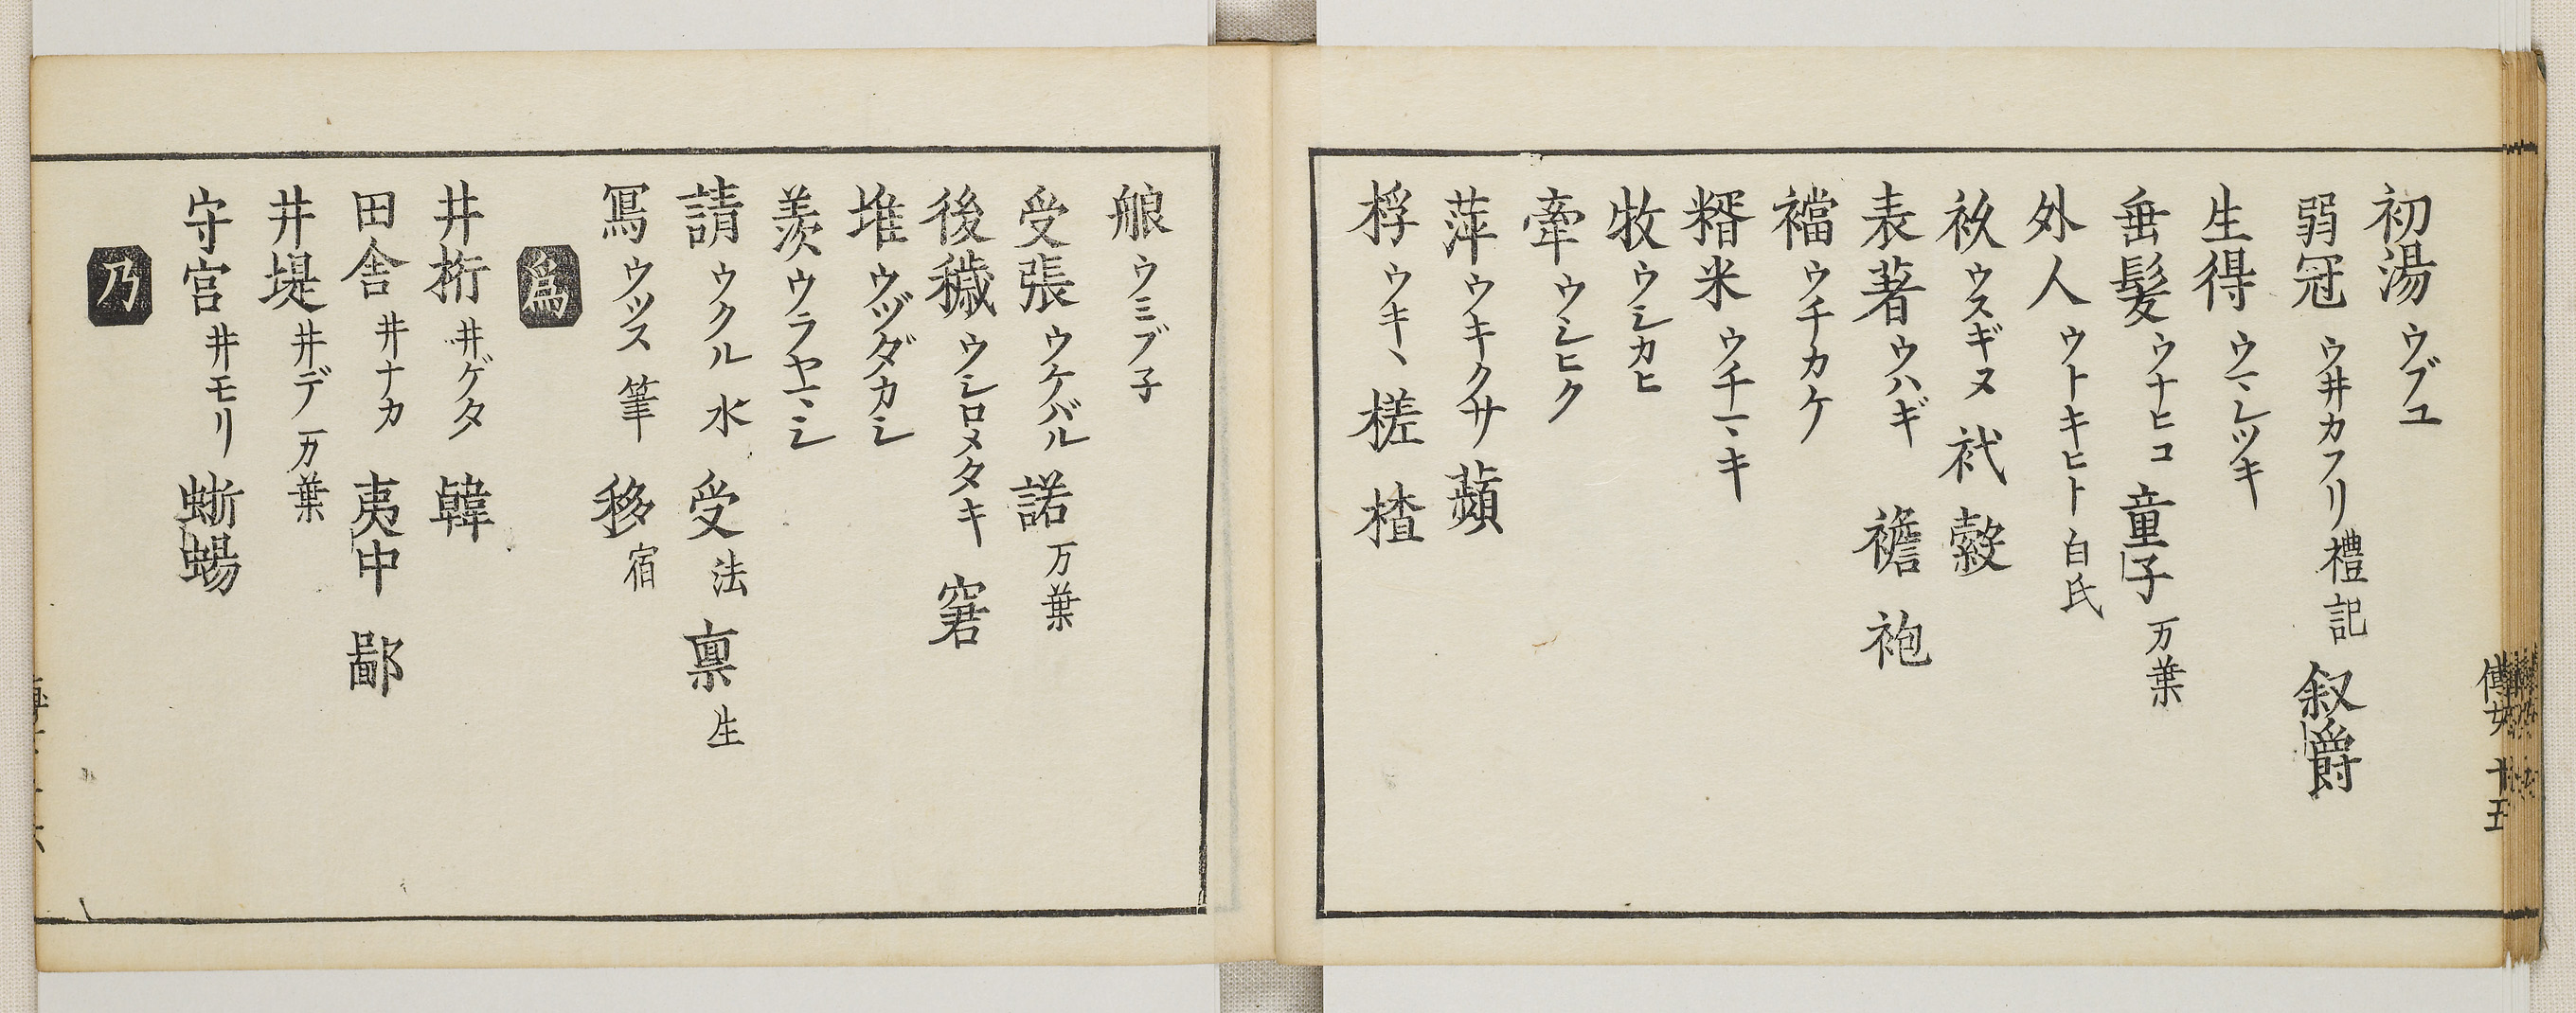 初湯ウブユ
弱冠ウ井カフリ禮記 叙爵
生得ウマレツキ
垂髪ウナヒコ 童子万葉
外人ウトキヒト白氏
衤ウスギヌ 袱 縠
表著ウハギ 襜 袍
襠ウチカケ
糈米ウチマキ
牧ウシカヒ
牽ウシヒク
萍ウキクサ 蘋
桴ウキヽ 槎 楂
艆ウミブ子
受張ウケバル 諾万葉
後穢ウシロメタキ 窘
堆ウヅダカシ
羨ウラヤマシ
請ウクル水 受法 稟生
冩ウツス筆 移宿
爲
井桁井ゲタ 韓
田舎井ナカ 夷中 鄙
井堤井デ万葉
守宮井モリ 蜥蜴
乃
十五